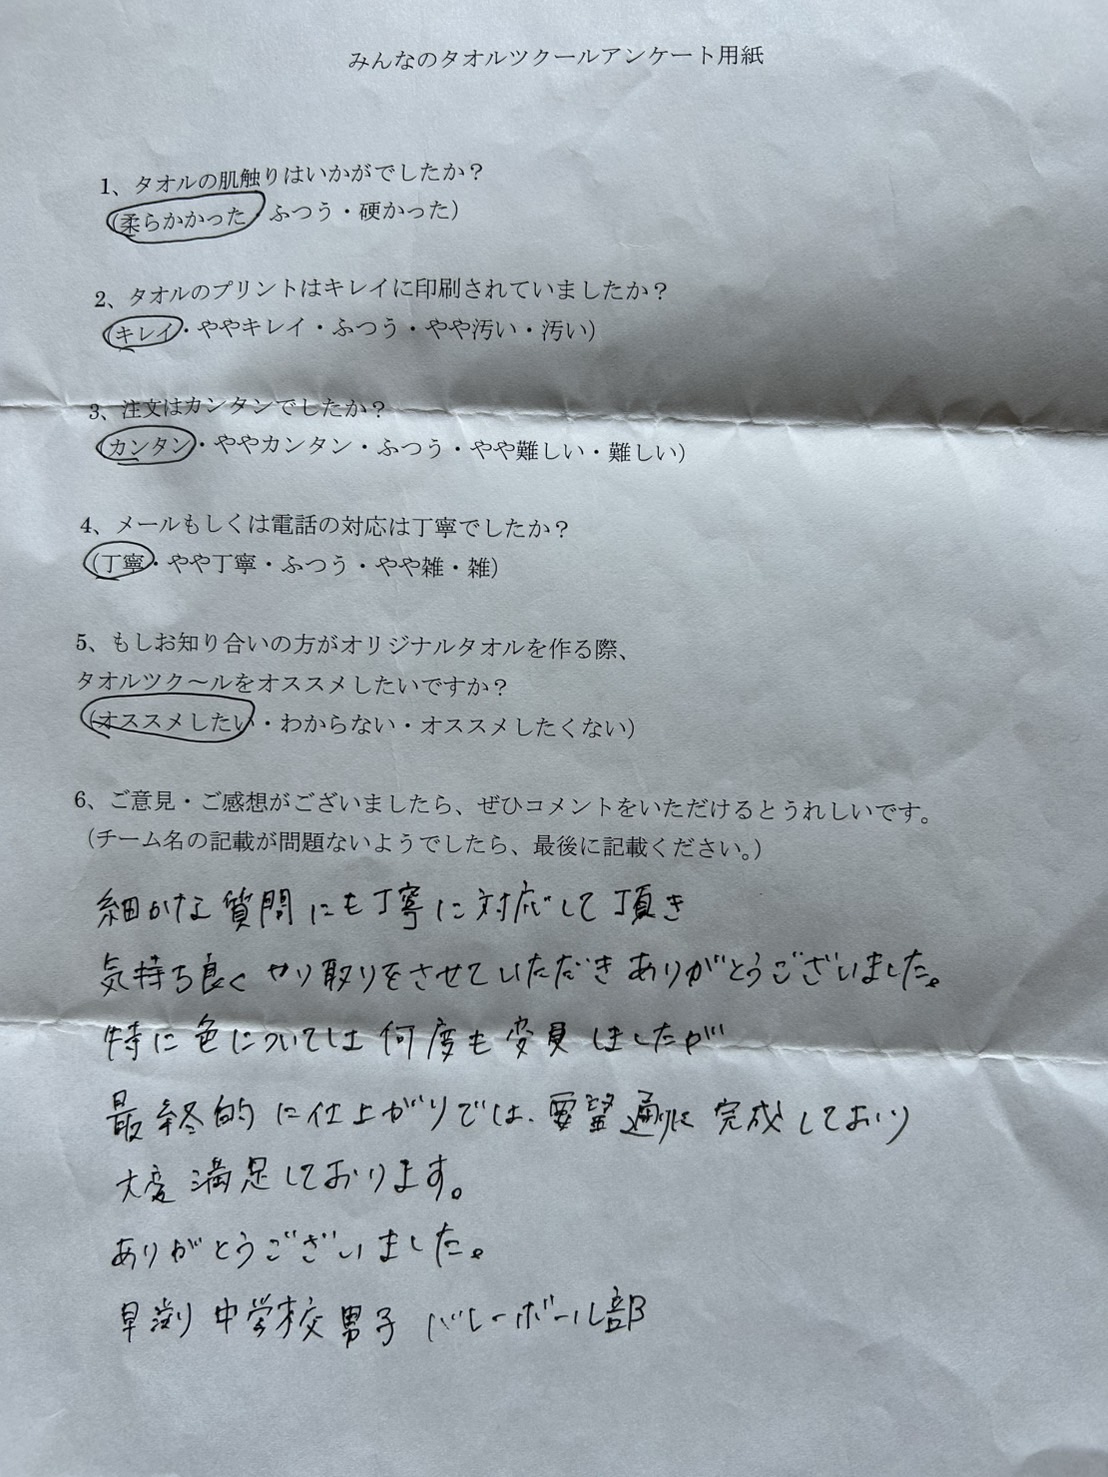 みんなのタオルツクールアンケート用紙
1、タオルの肌触りはいかがでしたか？
(柔らかかった・ふつう・硬かった)
2、タオルのプリントはキレイに印刷されていましたか？
(キレイ・ややキレイ・ふつう・やや汚い・汚い)
3、注文はカンタンでしたか？
(カンタン・ややカンタン・ふつう・やや難しい・難しい)
4、メールもしくは電話の対応は丁寧でしたか？
(丁寧・やや丁寧・ふつう・やや雑・雑)
5、もしお知り合いの方がオリジナルタオルを作る際、
タオルツク～ルをオススメしたいですか？
(オススメしたい・わからない・オススメしたくない)
6、ご意見・ご感想がございましたら、ぜひコメントをいただけるとうれしいです。
（チーム名の記載が問題ないようでしたら、最後に記載ください。）
細かな質問にも丁寧に対応して頂き
気持ち良くやり取りをさせていただきありがとうございました。
特に色については何度も変更しましたが
最終的に仕上がりでは、要望通りに完成しており
大変満足しております。
ありがとうございました。
早渕中学校男子バレーボール部